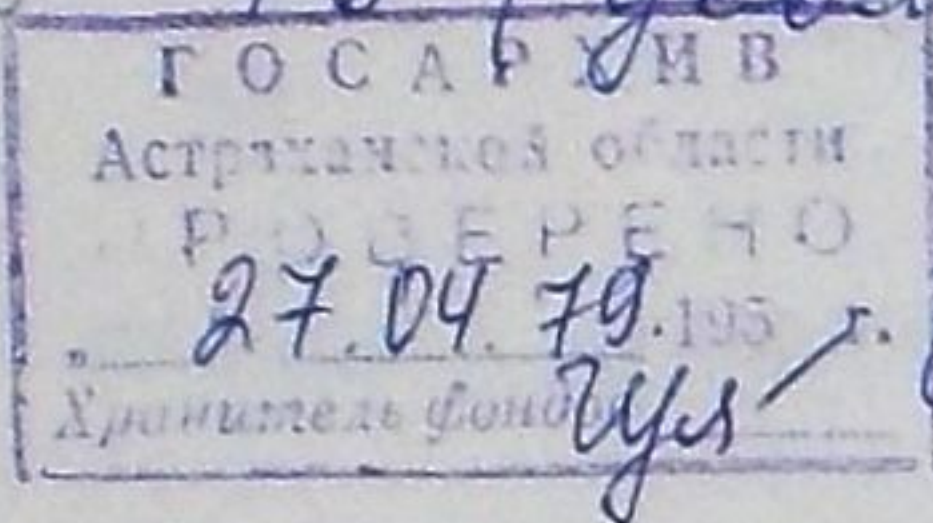 ГОСАРХИВ
Астраханской области
ПРОВЕРЕНО
„ 27.04.79. 195 г.
Хранитель фондов